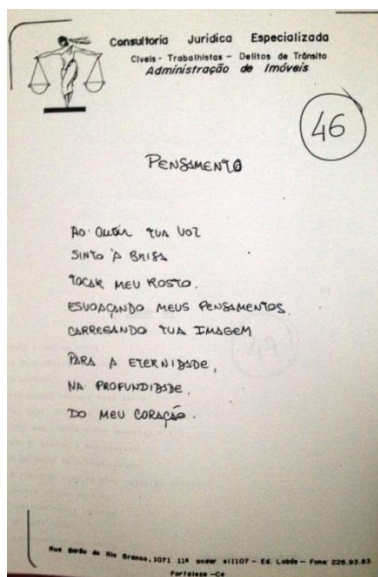 Consultoria Jurídica Especializada
Cíveis - Trabalhistas - Delitos de Trânsito
Administração de Imóveis
46
PENSAMENTO
AO OUVIR TUA VOZ
SINTO A BRISA
TOCAR MEU ROSTO.
ESVOAÇANDO MEUS PENSAMENTOS
CARREGANDO TUA IMAGEM
PARA A ETERNIDADE,
NA PROFUNDIDADE,
DO MEU CORAÇÃO.
Rua Barão do Rio Branco, 1071 11º andar s/1107 - Ed. Lobrás - Fone: 226.93.83
Fortaleza - Ce